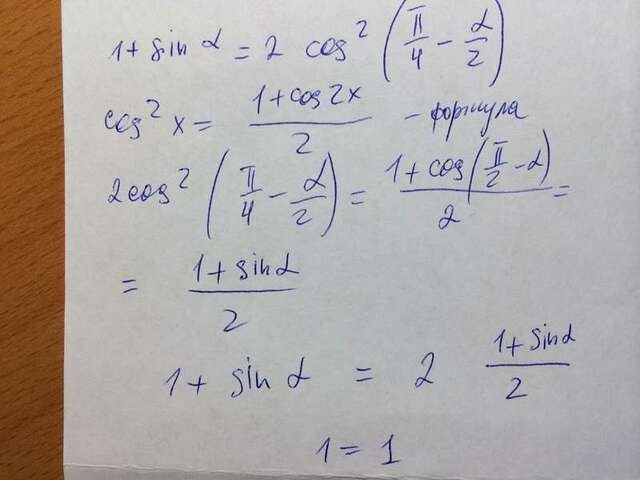 1 + sin α = 2 cos² (π/4 − α/2)
cos² x = (1 + cos 2x)/2 – формула
2cos² (π/4 − α/2) = (1 + cos(π/2 − α))/2 =
= (1 + sin α)/2
1 + sin α = 2 (1 + sin α)/2
1 = 1